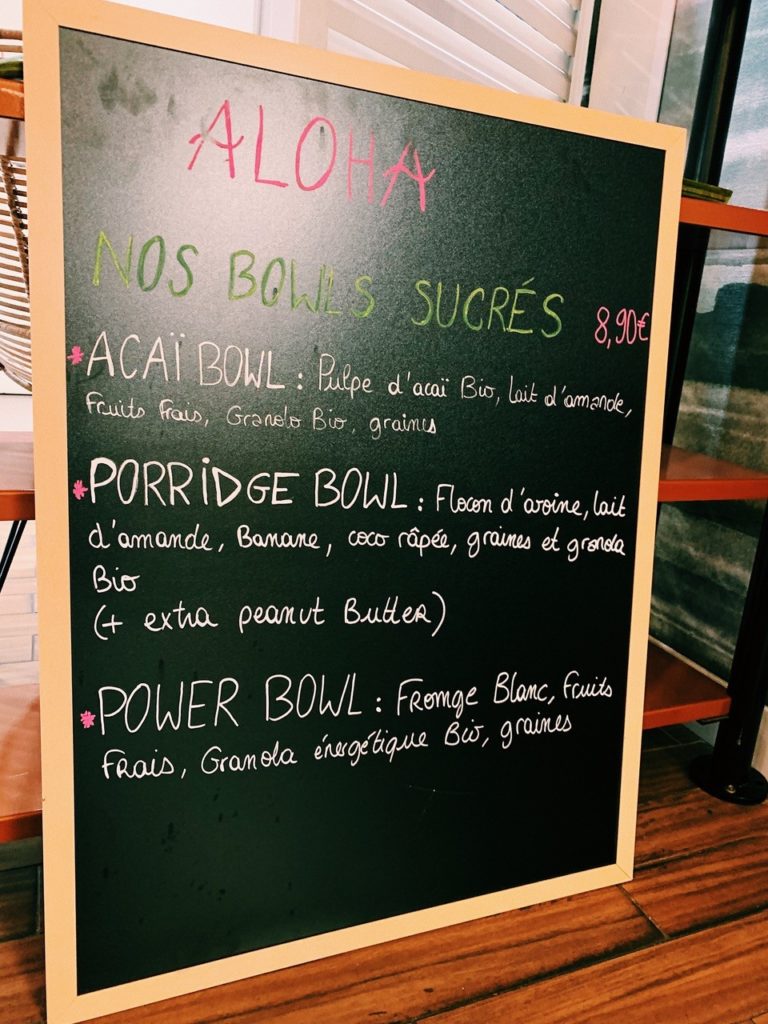 ALOHA
NOS BOWLS SUCRÉS 8,90€
* ACAÏ BOWL : Pulpe d'acaï Bio, lait d'amande,
Fruits Frais, Granola Bio, graines
* PORRIDGE BOWL : Flocon d'avoine, lait
d'amande, Banane, coco râpée, graines et granola
Bio
(+ extra peanut Butter)
* POWER BOWL : Fromge Blanc, Fruits
Frais, Granola énergétique Bio, graines